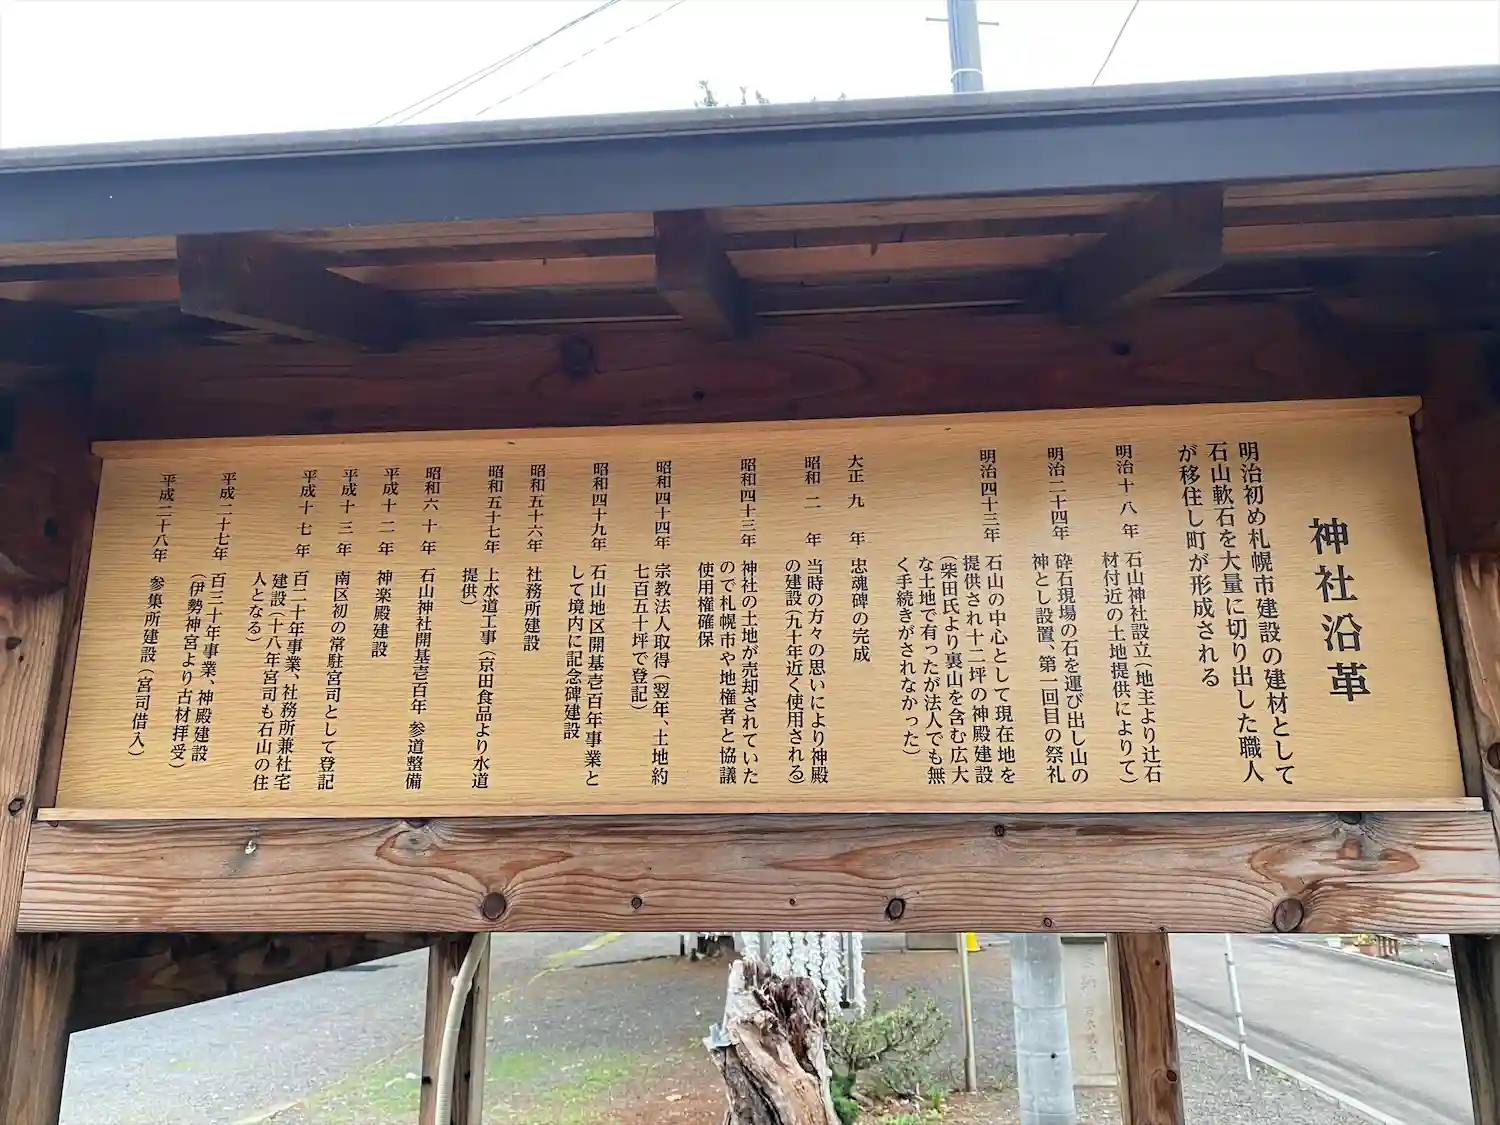 神社沿革
明治初め札幌市建設の建材として
石山軟石を大量に切り出した職人
が移住し町が形成される
明治十八年 石山神社設立(地主より辻石
材付近の土地提供によりて)
明治二十四年 砕石現場の石を運び出し山の
神とし設置、第一回目の祭礼
明治四十三年 石山の中心として現在地を
提供され十二坪の神殿建設
(柴田氏より裏山を含む広大
な土地で有ったが法人でも無
く手続きがされなかった)
大正九年 忠魂碑の完成
昭和二年 当時の方々の思いにより神殿
の建設(九十年近く使用される)
昭和四十三年 神社の土地が売却されていた
ので札幌市や地権者と協議
使用権確保
昭和四十四年 宗教法人取得(翌年、土地約
七百五十坪で登記)
昭和四十九年 石山地区開基壱百年事業と
して境内に記念碑建設
昭和五十六年 社務所建設
昭和五十七年 上水道工事(京田食品より水道
提供)
昭和六十年 石山神社開基壱百年 参道整備
平成十二年 神楽殿建設
平成十三年 南区初の常駐宮司として登記
平成十七年 百二十年事業、社務所兼社宅
建設(十八年宮司も石山の住
人となる)
平成二十七年 百三十年事業、神殿建設
(伊勢神宮より古材拝受)
平成二十八年 参集所建設(宮司借入)